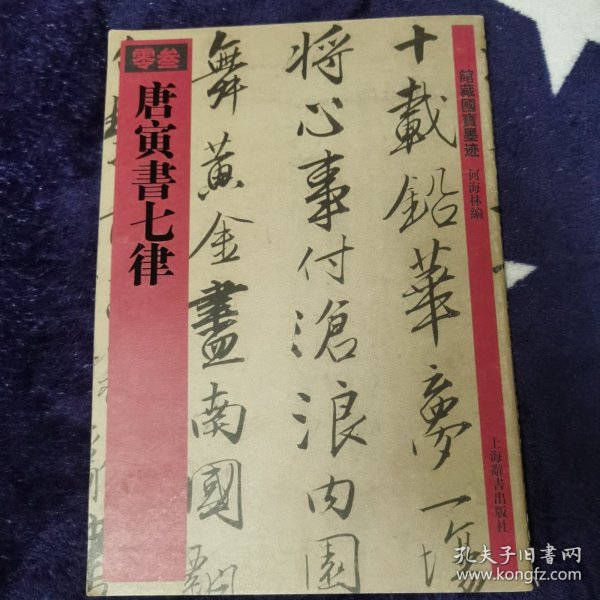 館藏國寶墨迹
何海林編
上海辭書出版社
十載鉛華夢一場
將心事付滄浪內園
舞黃金盡南國
零叁
唐寅書七律
孔夫子旧书网
www.kongfz.com